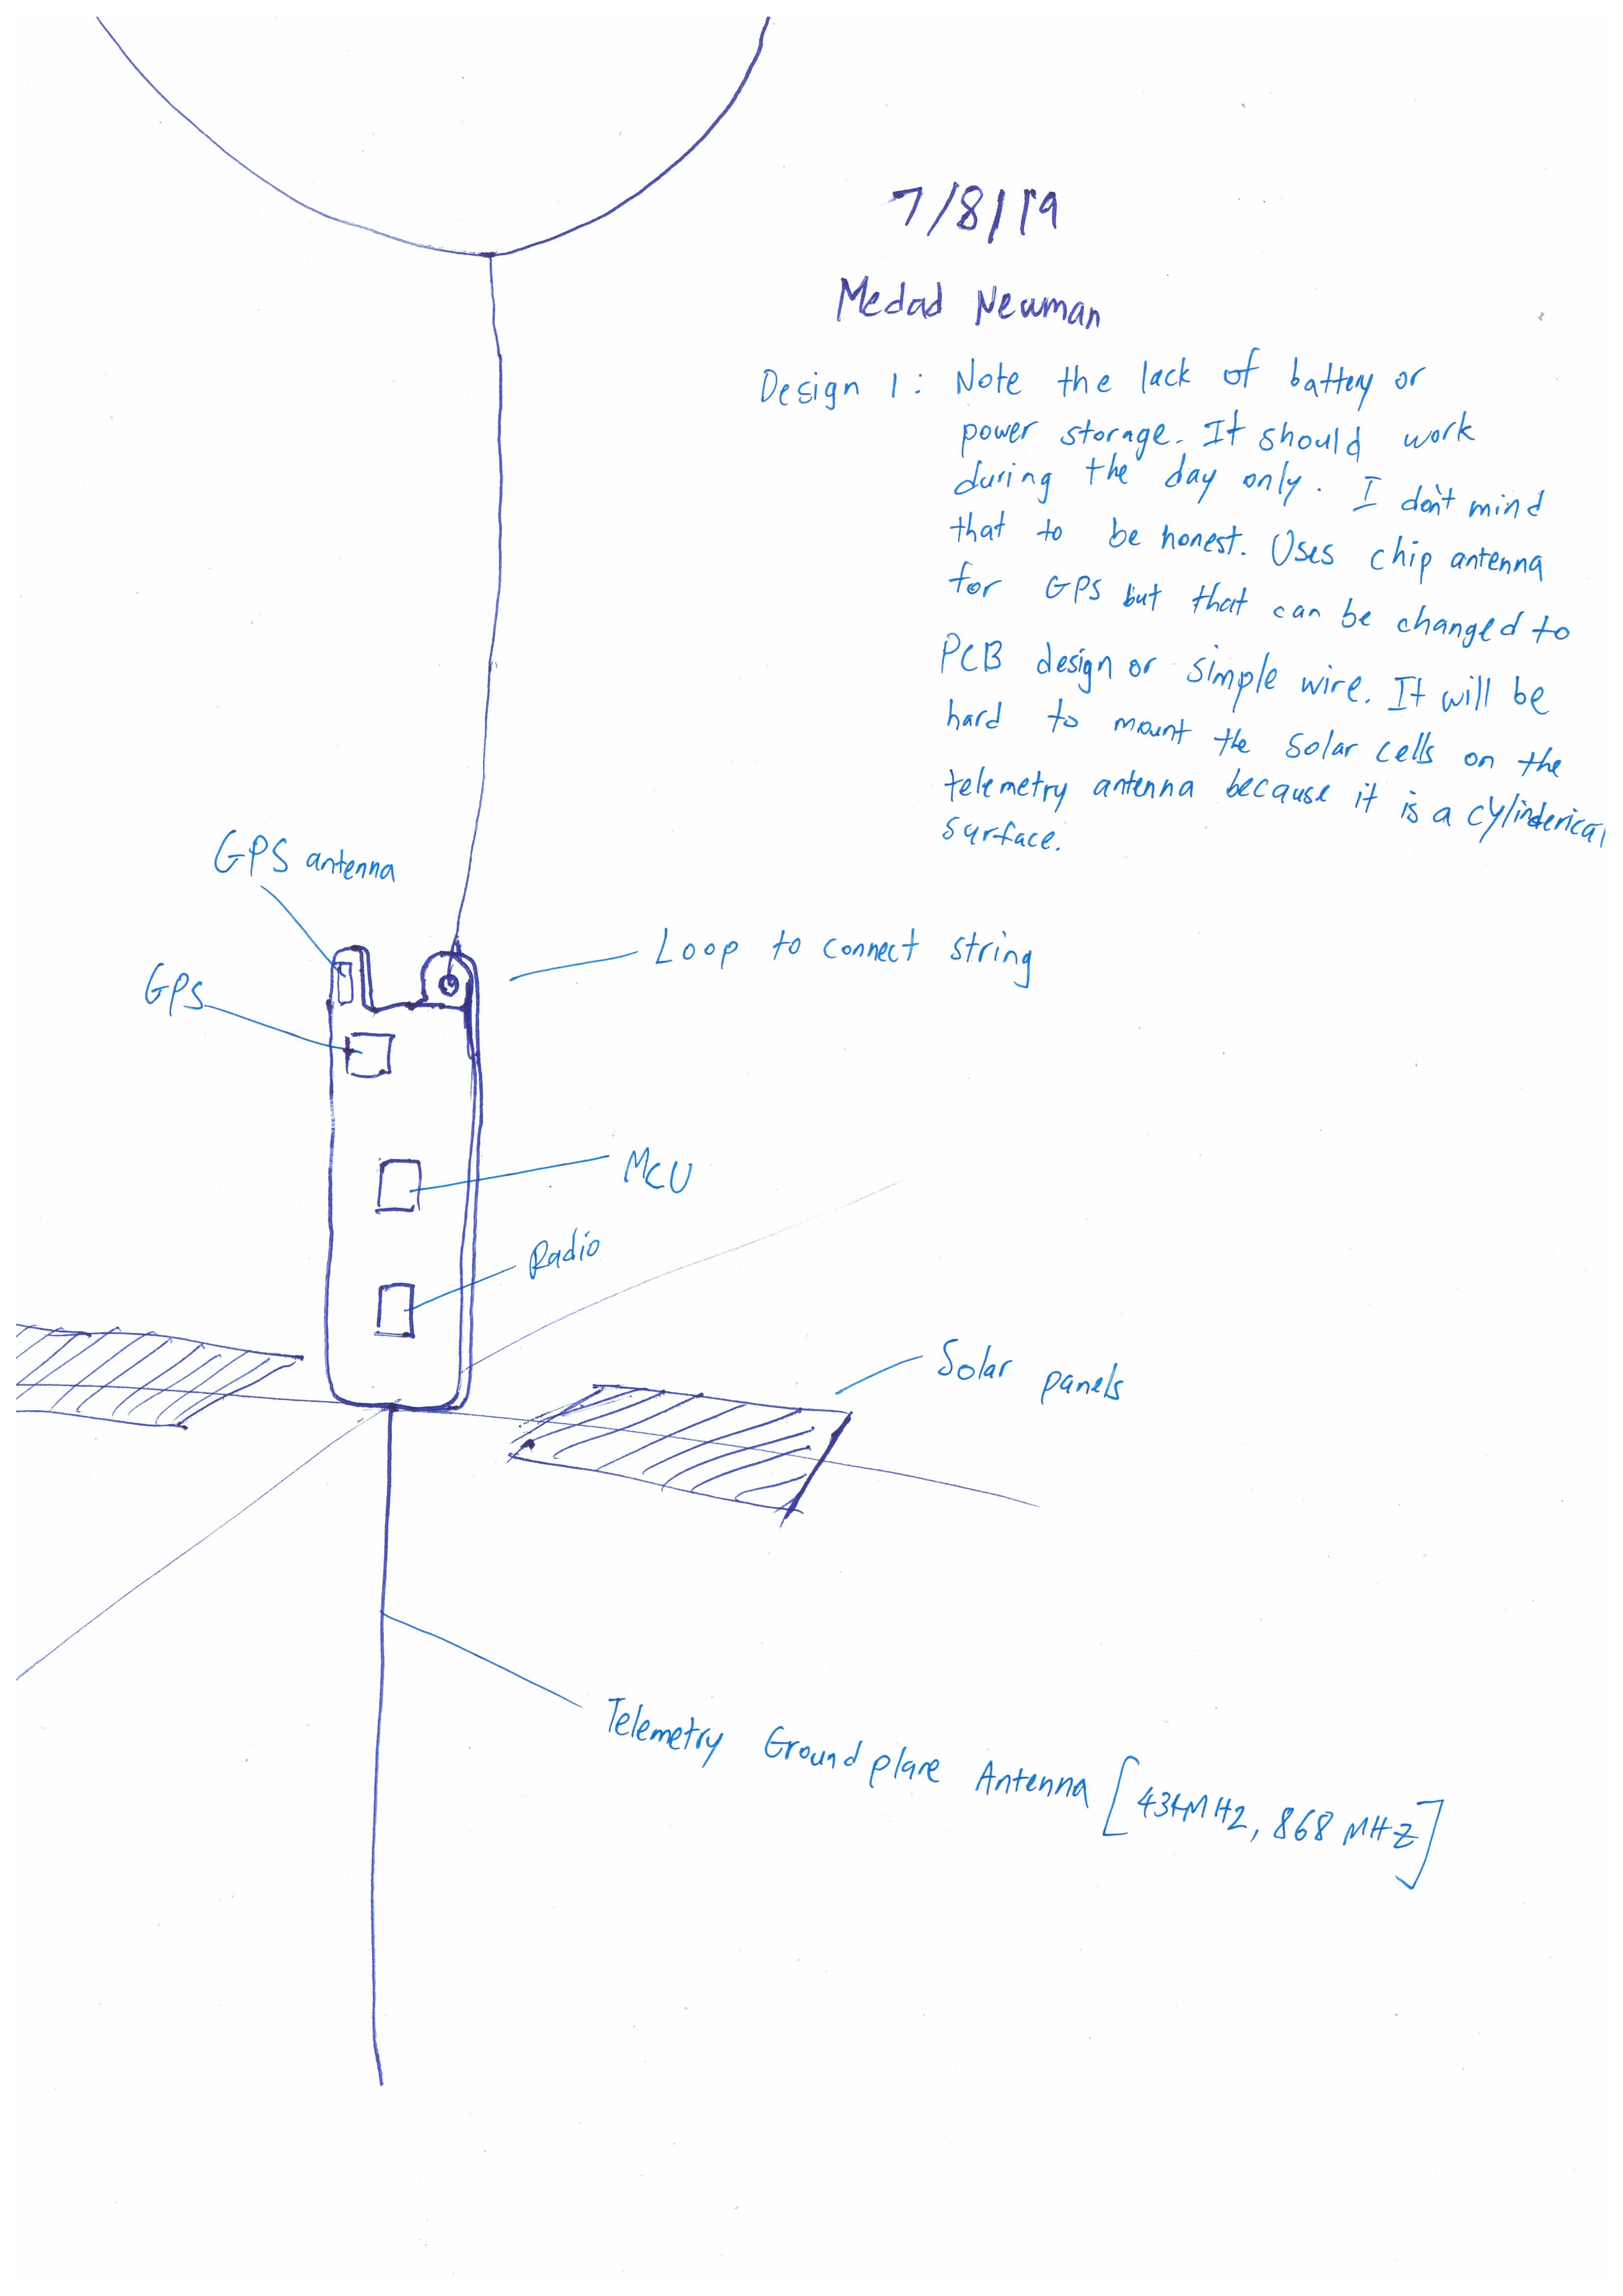 7/8/19
Medad Newman
Design 1: Note the lack of battery or
power storage. It should work
during the day only. I don't mind
that to be honest. Uses chip antenna
for GPS but that can be changed to
PCB design or simple wire. It will be
hard to mount the solar cells on the
telemetry antenna because it is a cylinderical
surface.
GPS antenna
Loop to connect string
GPS
MCU
Radio
Solar panels
Telemetry Ground plane Antenna [434MHz, 868 MHz]